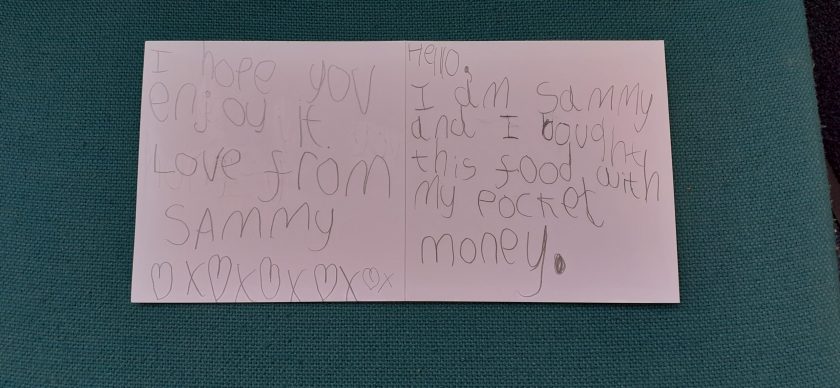 I hope you
enjoy it.
Love from
SAMMY
♡ x ♡ x ♡ x ♡ x ♡ x
Hello.
I am Sammy
and I bought
this food with
My pocket
money.